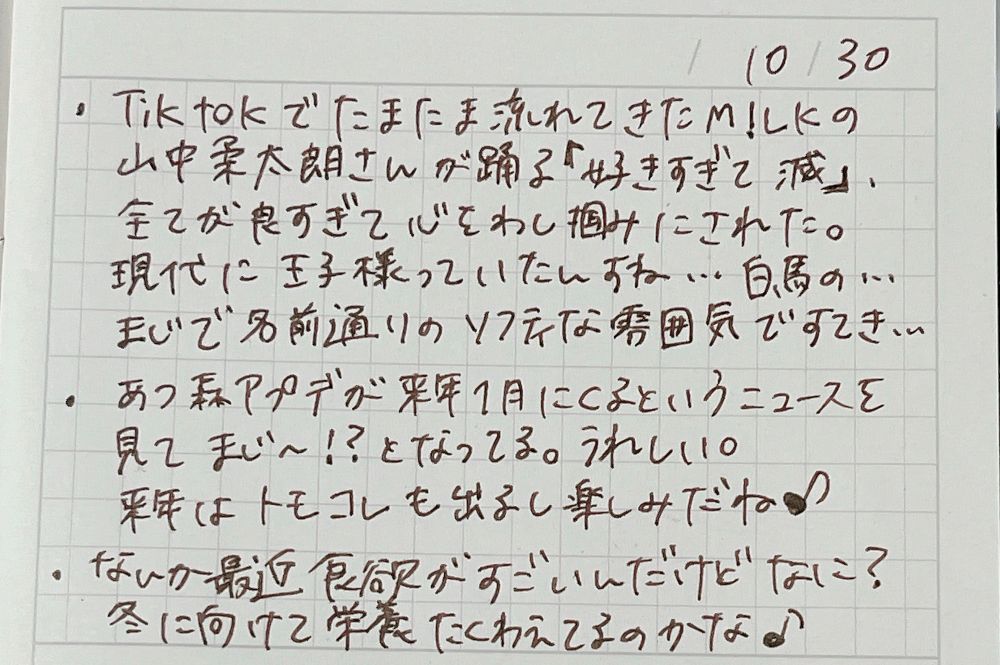 10/30
・TikTokでたまたま流れてきたM!LKの
山中柔太朗さんが踊る「好きすぎて滅」、
全てが良すぎて心をわし掴みにされた。
現代に王子様っていたんすね…白馬の…
まじで名前通りのソフティな雰囲気ですてき…
・あつ森アプデが来年1月にくるというニュースを
見てまじ～!?となってる。うれしい。
来年はトモコレも出るし楽しみだね♪
・なんか最近食欲がすごいんだけどなに?
冬に向けて栄養たくわえてるのかな♪